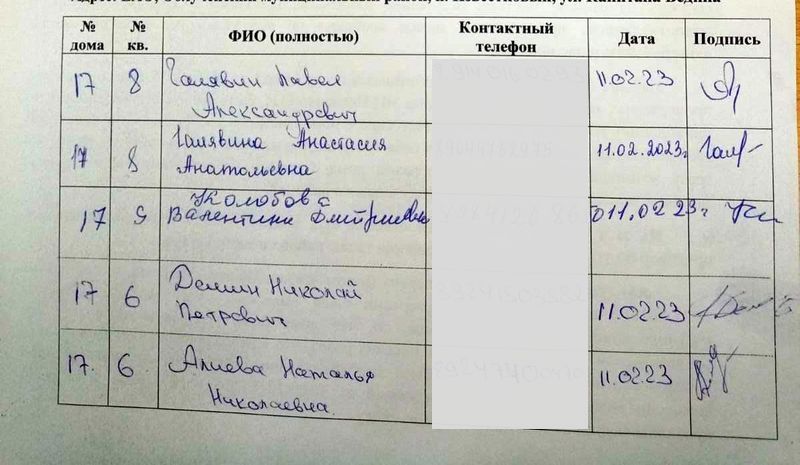 № дома № кв. ФИО (полностью) Контактный телефон Дата Подпись
17 8 Галявин Павел Александрович 11.02.23
17 8 Галявина Анастасия Анатольевна 11.02.2023г.
17 9 Колобова Валентина Дмитриевна 011.02 23г
17 6 Демин Николай Петрович 11.02.23
17. 6 Алиева Наталья Николаевна. 11.02.23